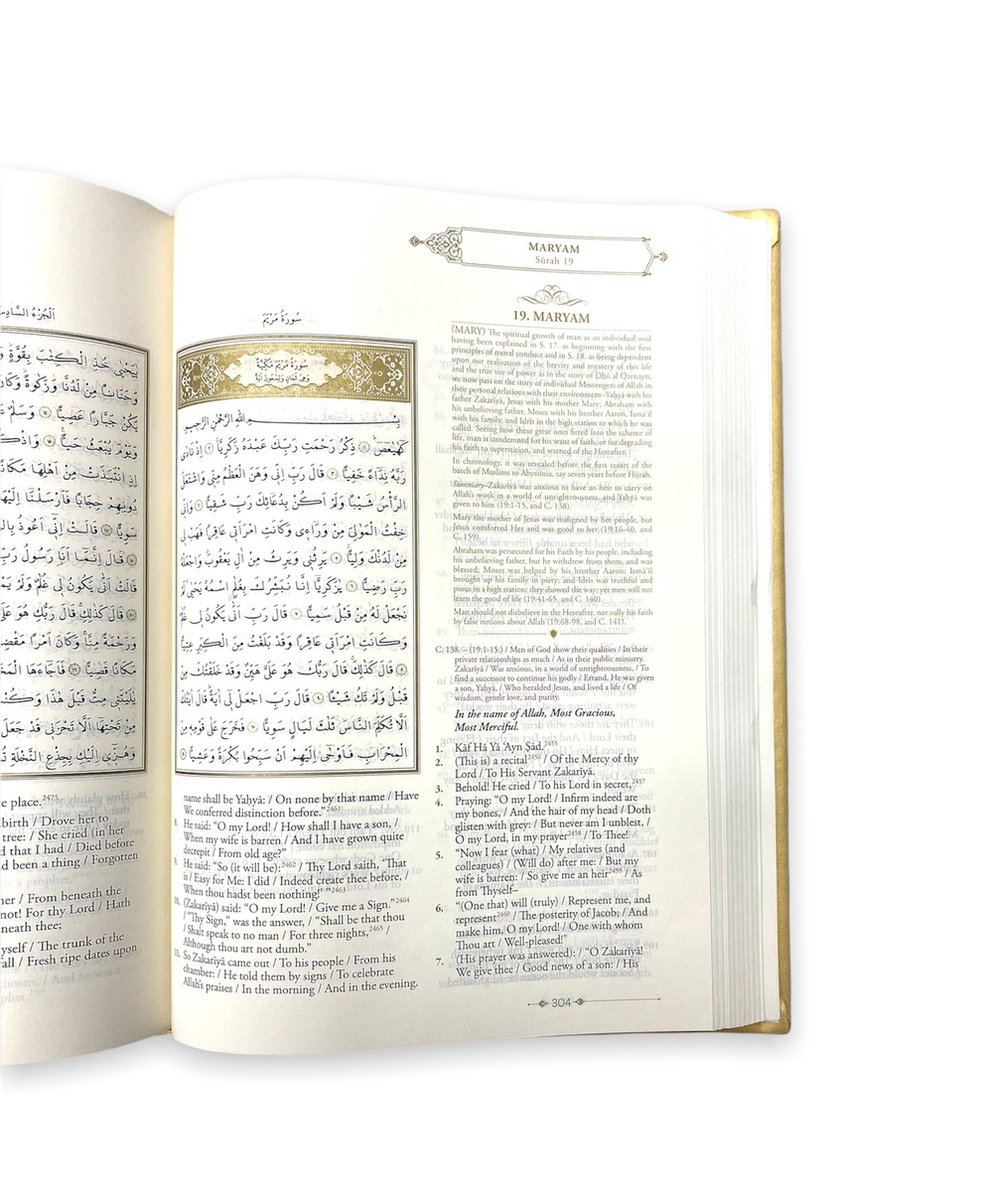 اَلْجُزْءُ السَّادِسَ
يَٰيَحْيَىٰ خُذِ الْكِتَٰبَ بِقُوَّةٍ
وَحَنَانًا مِّن لَّدُنَّا وَزَكَوٰةً وَكَانَ
يَكُن جَبَّارًا عَصِيًّا ١٤ وَسَلَٰمٌ
وَيَوْمَ يُبْعَثُ حَيًّا ١٥ وَاذْكُ
إِذِ انتَبَذَتْ مِنْ أَهْلِهَا مَكَانًا
دُونِهِمْ حِجَابًا فَأَرْسَلْنَا إِلَيْهَا
سَوِيًّا ١٧ قَالَتْ إِنِّي أَعُوذُ بِالر
١٨ قَالَ إِنَّمَا أَنَا رَسُولُ رَبِّ
قَالَتْ أَنَّىٰ يَكُونُ لِي غُلَٰمٌ وَلَمْ يَم
٢٠ قَالَ كَذَٰلِكِ قَالَ رَبُّكِ هُوَ عَلَ
وَرَحْمَةً مِّنَّا وَكَانَ أَمْرًا مَّقْضِ
مَكَانًا قَصِيًّا ٢٢ فَأَجَاءَهَا الْمَخَ
يَٰلَيْتَنِي مِتُّ قَبْلَ هَٰذَا وَكُن
مِن تَحْتِهَا أَلَّا تَحْزَنِي قَدْ جَعَلَ
وَهُزِّي إِلَيْكِ بِجِذْعِ النَّخْلَةِ تُ
place.2475
birth / Drove her to
tree: / She cried (in her
d that I had / Died before
d been a thing / Forgotten
her / From beneath the
not! For thy Lord / Hath
neath thee;
yself / The trunk of the
all / Fresh ripe dates upon
MARYAM
Sūrah 19
19. MARYAM
(MARY) The spiritual growth of man as an individual soul
having been explained in S. 17. as beginning with the first
principles of moral conduct and in S. 18. as being dependent
upon our realisation of the brevity and mystery of this life
and the true use of power as in the story of Dhū al Qarnayn,
we now pass on the story of individual Messengers of Allah in
their personal relations with their environment–Yaḥyā with his
father Zakarīyā, Jesus with his mother Mary; Abraham with
his unbelieving father, Moses with his brother Aaron, Ismā'īl
with his family, and Idris in the high station to which he was
called. Seeing how these great ones fitted into the scheme of
life, man is condemned for his want of faith, or for degrading
his faith to superstition, and warned of the Hereafter.
In chronology, it was revealed before the first resort of the
batch of Muslims to Abyssinia, say seven years before Hijrah.
Summary–Zakarīyā was anxious to have an heir to carry on
Allah's work in a world of unrighteousness, and Yaḥyā was
given to him (19:1-15, and C. 138).
Mary the mother of Jesus was maligned by her people, but
Jesus comforted Her and was good to her (19:16-40, and
C. 159).
Abraham was persecuted for his Faith by his people, including
his unbelieving father, but he withdrew from them, and was
blessed; Moses was helped by his brother Aaron; Ismā'īl
brought up his family in piety; and Idris was truthful and
pious in a high station; they showed the way; yet men will not
learn the good of life (19:41-65, and C. 140).
Man should not disbelieve in the Hereafter, nor sully his faith
by false notions about Allah (19:68-98, and C. 141).
C. 138. – (19:1-15.) / Men of God show their qualities / In their
private relationships as much / As in their public ministry.
Zakarīyā / Was anxious, in a world of unrighteousness, / To
find a successor to continue his godly / Errand. He was given
a son, Yaḥyā, / Who heralded Jesus, and lived a life / Of
wisdom, gentle love, and purity.
In the name of Allah, Most Gracious,
Most Merciful.
1. Kāf Hā Yā 'Ayn Ṣād.2455
2. (This is) a recital2456 / Of the Mercy of thy
Lord / To His Servant Zakarīyā.
3. Behold! He cried / To his Lord in secret,2457
4. Praying: "O my Lord! / Infirm indeed are
my bones, / And the hair of my head / Doth
glisten with grey: / But never am I unblest, /
O my Lord, in my prayer2458 / To Thee!
5. "Now I fear (what) / My relatives (and
colleagues) / (Will do) after me: / But my
wife is barren: / So give me an heir2459 / As
from Thyself–
6. "(One that) will (truly) / Represent me, and
represent2460 / The posterity of Jacob; / And
make him, O my Lord! / One with whom
Thou art / Well-pleased!"
7. (His prayer was answered): / "O Zakarīyā!
We give thee / Good news of a son: / His
سُورَةُ مَرْيَمَ
سُورَةُ مَرْيَمَ مَكِّيَّةٌ
وَهِيَ ثَمَانٍ وَتِسْعُونَ اٰيَةً
بِسْمِ اللّٰهِ الرَّحْمٰنِ الرَّحِيمِ
كٓهٰيٰعٓصٓ ١ ذِكْرُ رَحْمَتِ رَبِّكَ عَبْدَهُ زَكَرِيَّا ٢ إِذْ نَادَىٰ
رَبَّهُ نِدَاءً خَفِيًّا ٣ قَالَ رَبِّ إِنِّي وَهَنَ الْعَظْمُ مِنِّي وَاشْتَعَلَ
الرَّأْسُ شَيْبًا وَلَمْ أَكُنْ بِدُعَائِكَ رَبِّ شَقِيًّا ٤ وَإِنِّي
خِفْتُ الْمَوَالِيَ مِنْ وَرَاءِي وَكَانَتِ امْرَأَتِي عَاقِرًا فَهَبْ لِي
مِنْ لَدُنْكَ وَلِيًّا ٥ يَرِثُنِي وَيَرِثُ مِنْ اٰلِ يَعْقُوبَ وَاجْعَلْهُ
رَبِّ رَضِيًّا ٦ يَٰزَكَرِيَّا إِنَّا نُبَشِّرُكَ بِغُلَٰمٍ اسْمُهُ يَحْيَىٰ لَمْ
نَجْعَلْ لَهُ مِنْ قَبْلُ سَمِيًّا ٧ قَالَ رَبِّ أَنَّىٰ يَكُونُ لِي غُلَٰمٌ
وَكَانَتِ امْرَأَتِي عَاقِرًا وَقَدْ بَلَغْتُ مِنَ الْكِبَرِ عِتِيًّا
٨ قَالَ كَذَٰلِكَ قَالَ رَبُّكَ هُوَ عَلَيَّ هَيِّنٌ وَقَدْ خَلَقْتُكَ مِنْ
قَبْلُ وَلَمْ تَكُ شَيْئًا ٩ قَالَ رَبِّ اجْعَلْ لِي اٰيَةً قَالَ اٰيَتُكَ
أَلَّا تُكَلِّمَ النَّاسَ ثَلَٰثَ لَيَالٍ سَوِيًّا ١٠ فَخَرَجَ عَلَىٰ قَوْمِهِ مِنَ
الْمِحْرَابِ فَأَوْحَىٰ إِلَيْهِمْ أَنْ سَبِّحُوا بُكْرَةً وَعَشِيًّا ١١
name shall be Yaḥyā: / On none by that name / Have
We conferred distinction before."2461
8. He said: "O my Lord! / How shall I have a son, /
When my wife is barren / And I have grown quite
decrepit / From old age?"
9. He said: "So (it will be):2462 / Thy Lord saith, 'That
is / Easy for Me: I did / Indeed create thee before, /
When thou hadst been nothing!'"2463
10. (Zakarīyā) said: "O my Lord! / Give me a Sign."2464
/ "Thy Sign," was the answer, / "Shall be that thou
/ Shalt speak to no man / For three nights,2465 /
Although thou art not dumb."
11. So Zakarīyā came out / To his people / From his
chamber: / He told them by signs / To celebrate
Allah's praises / In the morning / And in the evening.
304